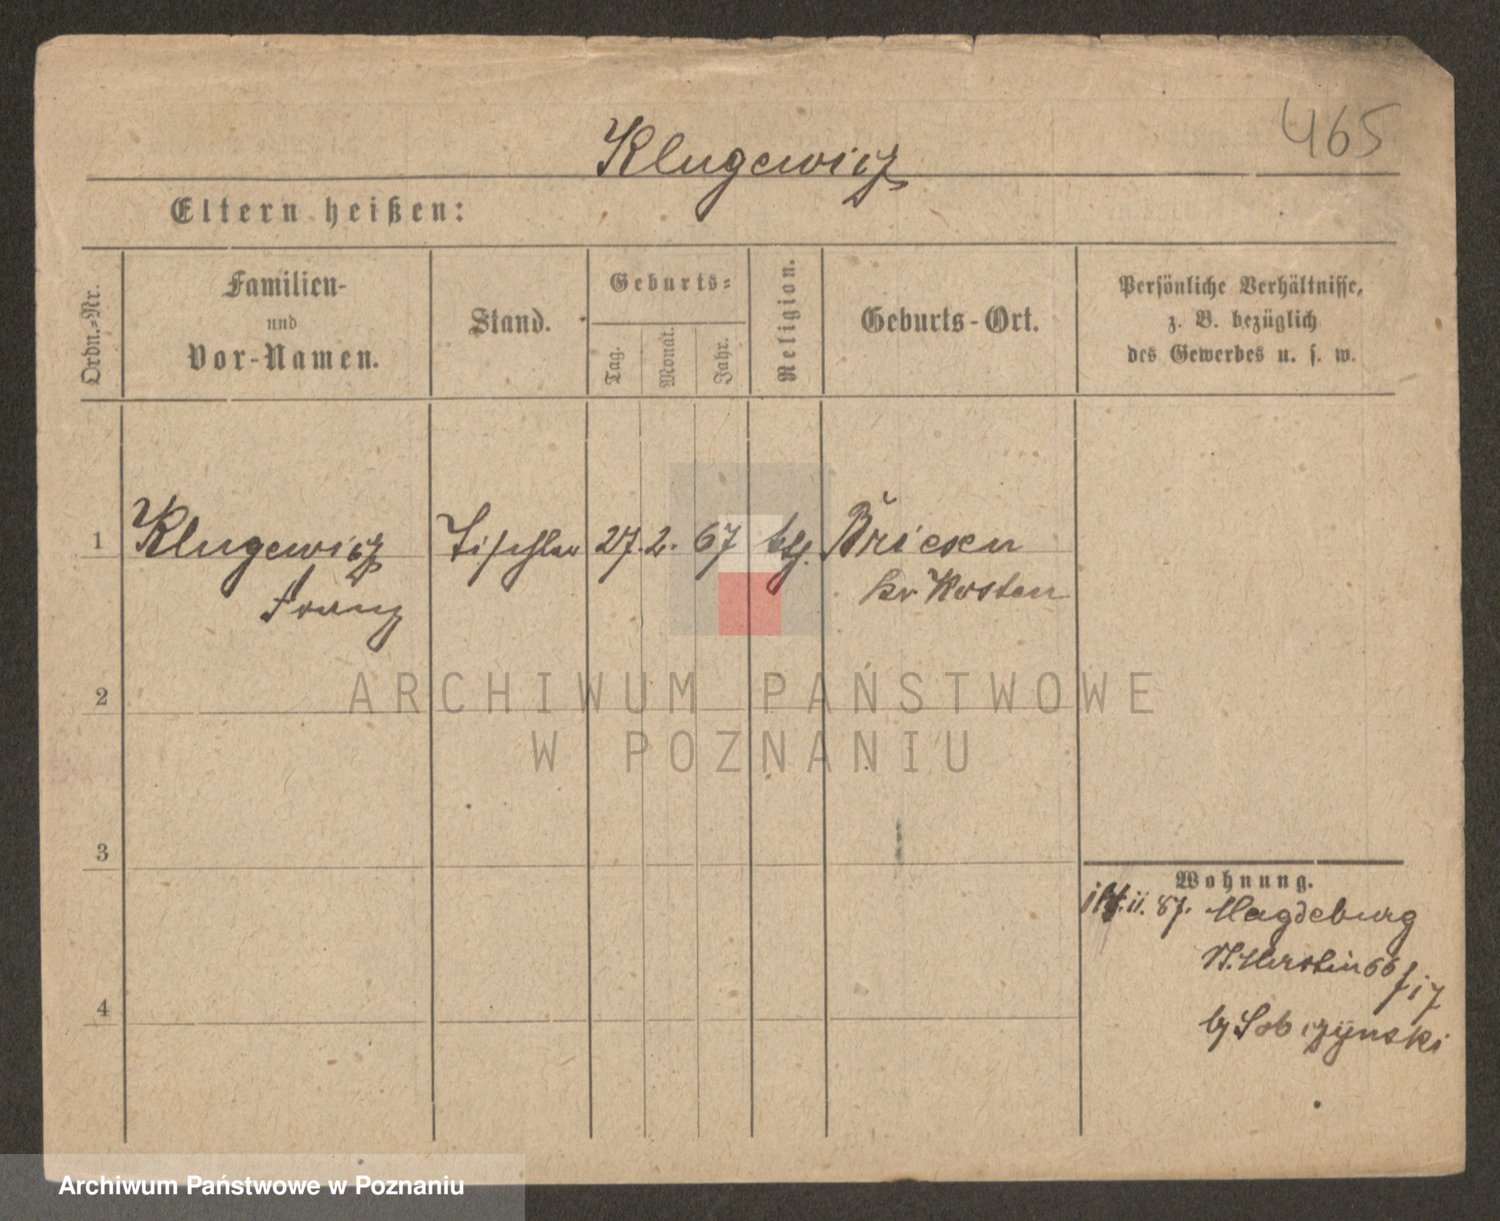 465
Klugewicz
Eltern heißen:
Ordn.-Nr.
Familien-
und
Vor-Namen.
Stand.
Geburts-
Tag.
Monat.
Jahr.
Religion.
Geburts-Ort.
Persönliche Verhältnisse,
z. B. bezüglich
des Gewerbes u. s. w.
1
Klugewicz
Franz
Tischler
27. 2. 67
ktl.
Briesen
Kr Kosten
2
ARCHIWUM PAŃSTWOWE
W POZNANIU
3
Wohnung.
11. 87. Magdeburg
St. Martin 66
bj Sobczynski
4
Archiwum Państwowe w Poznaniu